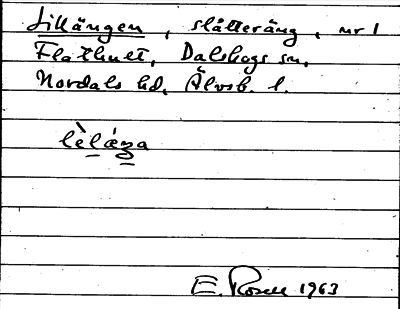 Lillängen, slåtteräng, nr 1
Flathult, Dalskogs sn,
Nordals hd, Älvsb. l.
lèlæŋa
E. Rosell 1963